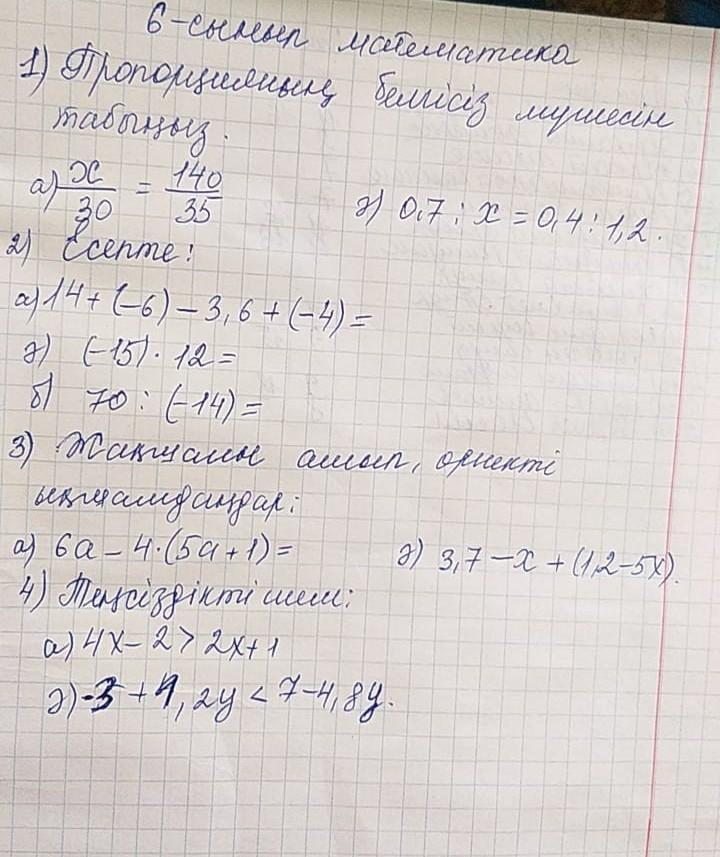 6-сынып математика
1) Пропорцияның белгісіз мүшесін
табыңыз.
а) x/30 = 140/35 ә) 0,7 : x = 0,4 : 1,2.
2) Есепте:
а) 14 + (-6) - 3,6 + (-4) =
ә) (-15) · 12 =
б) 70 : (-14) =
3) Жақшаны ашып, өрнекті
ықшамдаңдар:
а) 6a - 4·(5a+1) = ә) 3,7 - x + (1,2 - 5x).
4) Теңсіздікті шеш:
а) 4x - 2 > 2x + 1
ә) -3 + 4,2y < 7 - 4,8y.